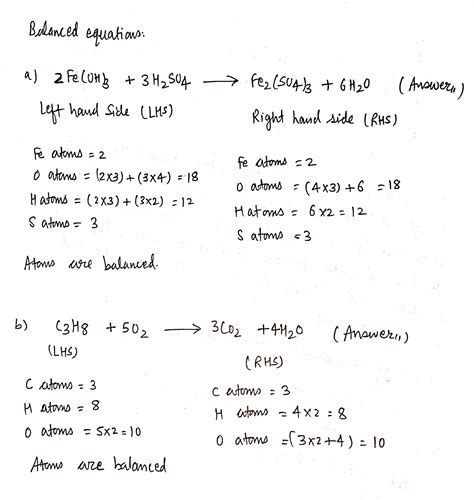 Balanced equations:
a) 2Fe(OH)3 + 3H2SO4 → Fe2(SO4)3 + 6H2O (Answer,,)
Left hand Side (LHS) Right hand side (RHS)
Fe atoms = 2
O atoms = (2x3) + (3x4) = 18
H atoms = (2x3) + (3x2) = 12
S atoms = 3
Fe atoms = 2
O atoms = (4x3) + 6 = 18
H atoms = 6x2 = 12
S atoms = 3
Atoms are balanced.
b) C3H8 + 5O2 → 3CO2 + 4H2O (Answer,,)
(LHS) (RHS)
C atoms = 3
H atoms = 8
O atoms = 5x2 = 10
C atoms = 3
H atoms = 4x2 = 8
O atoms = (3x2+4) = 10
Atoms are balanced